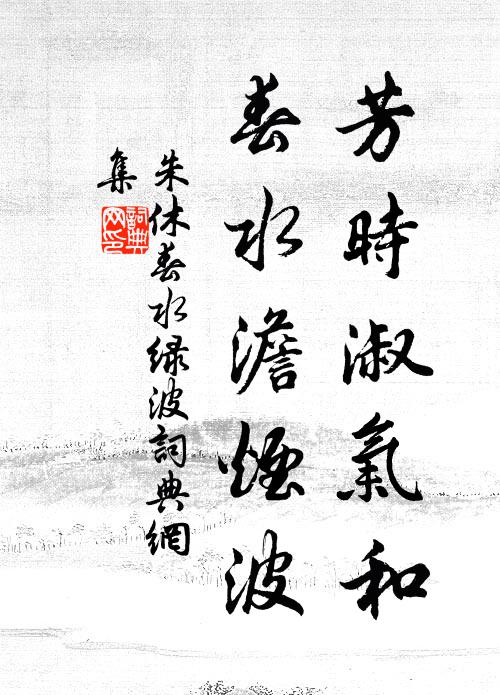 芳時淑氣和
春水澹煙波
朱休春水綠波詞典網
集
詞典網印